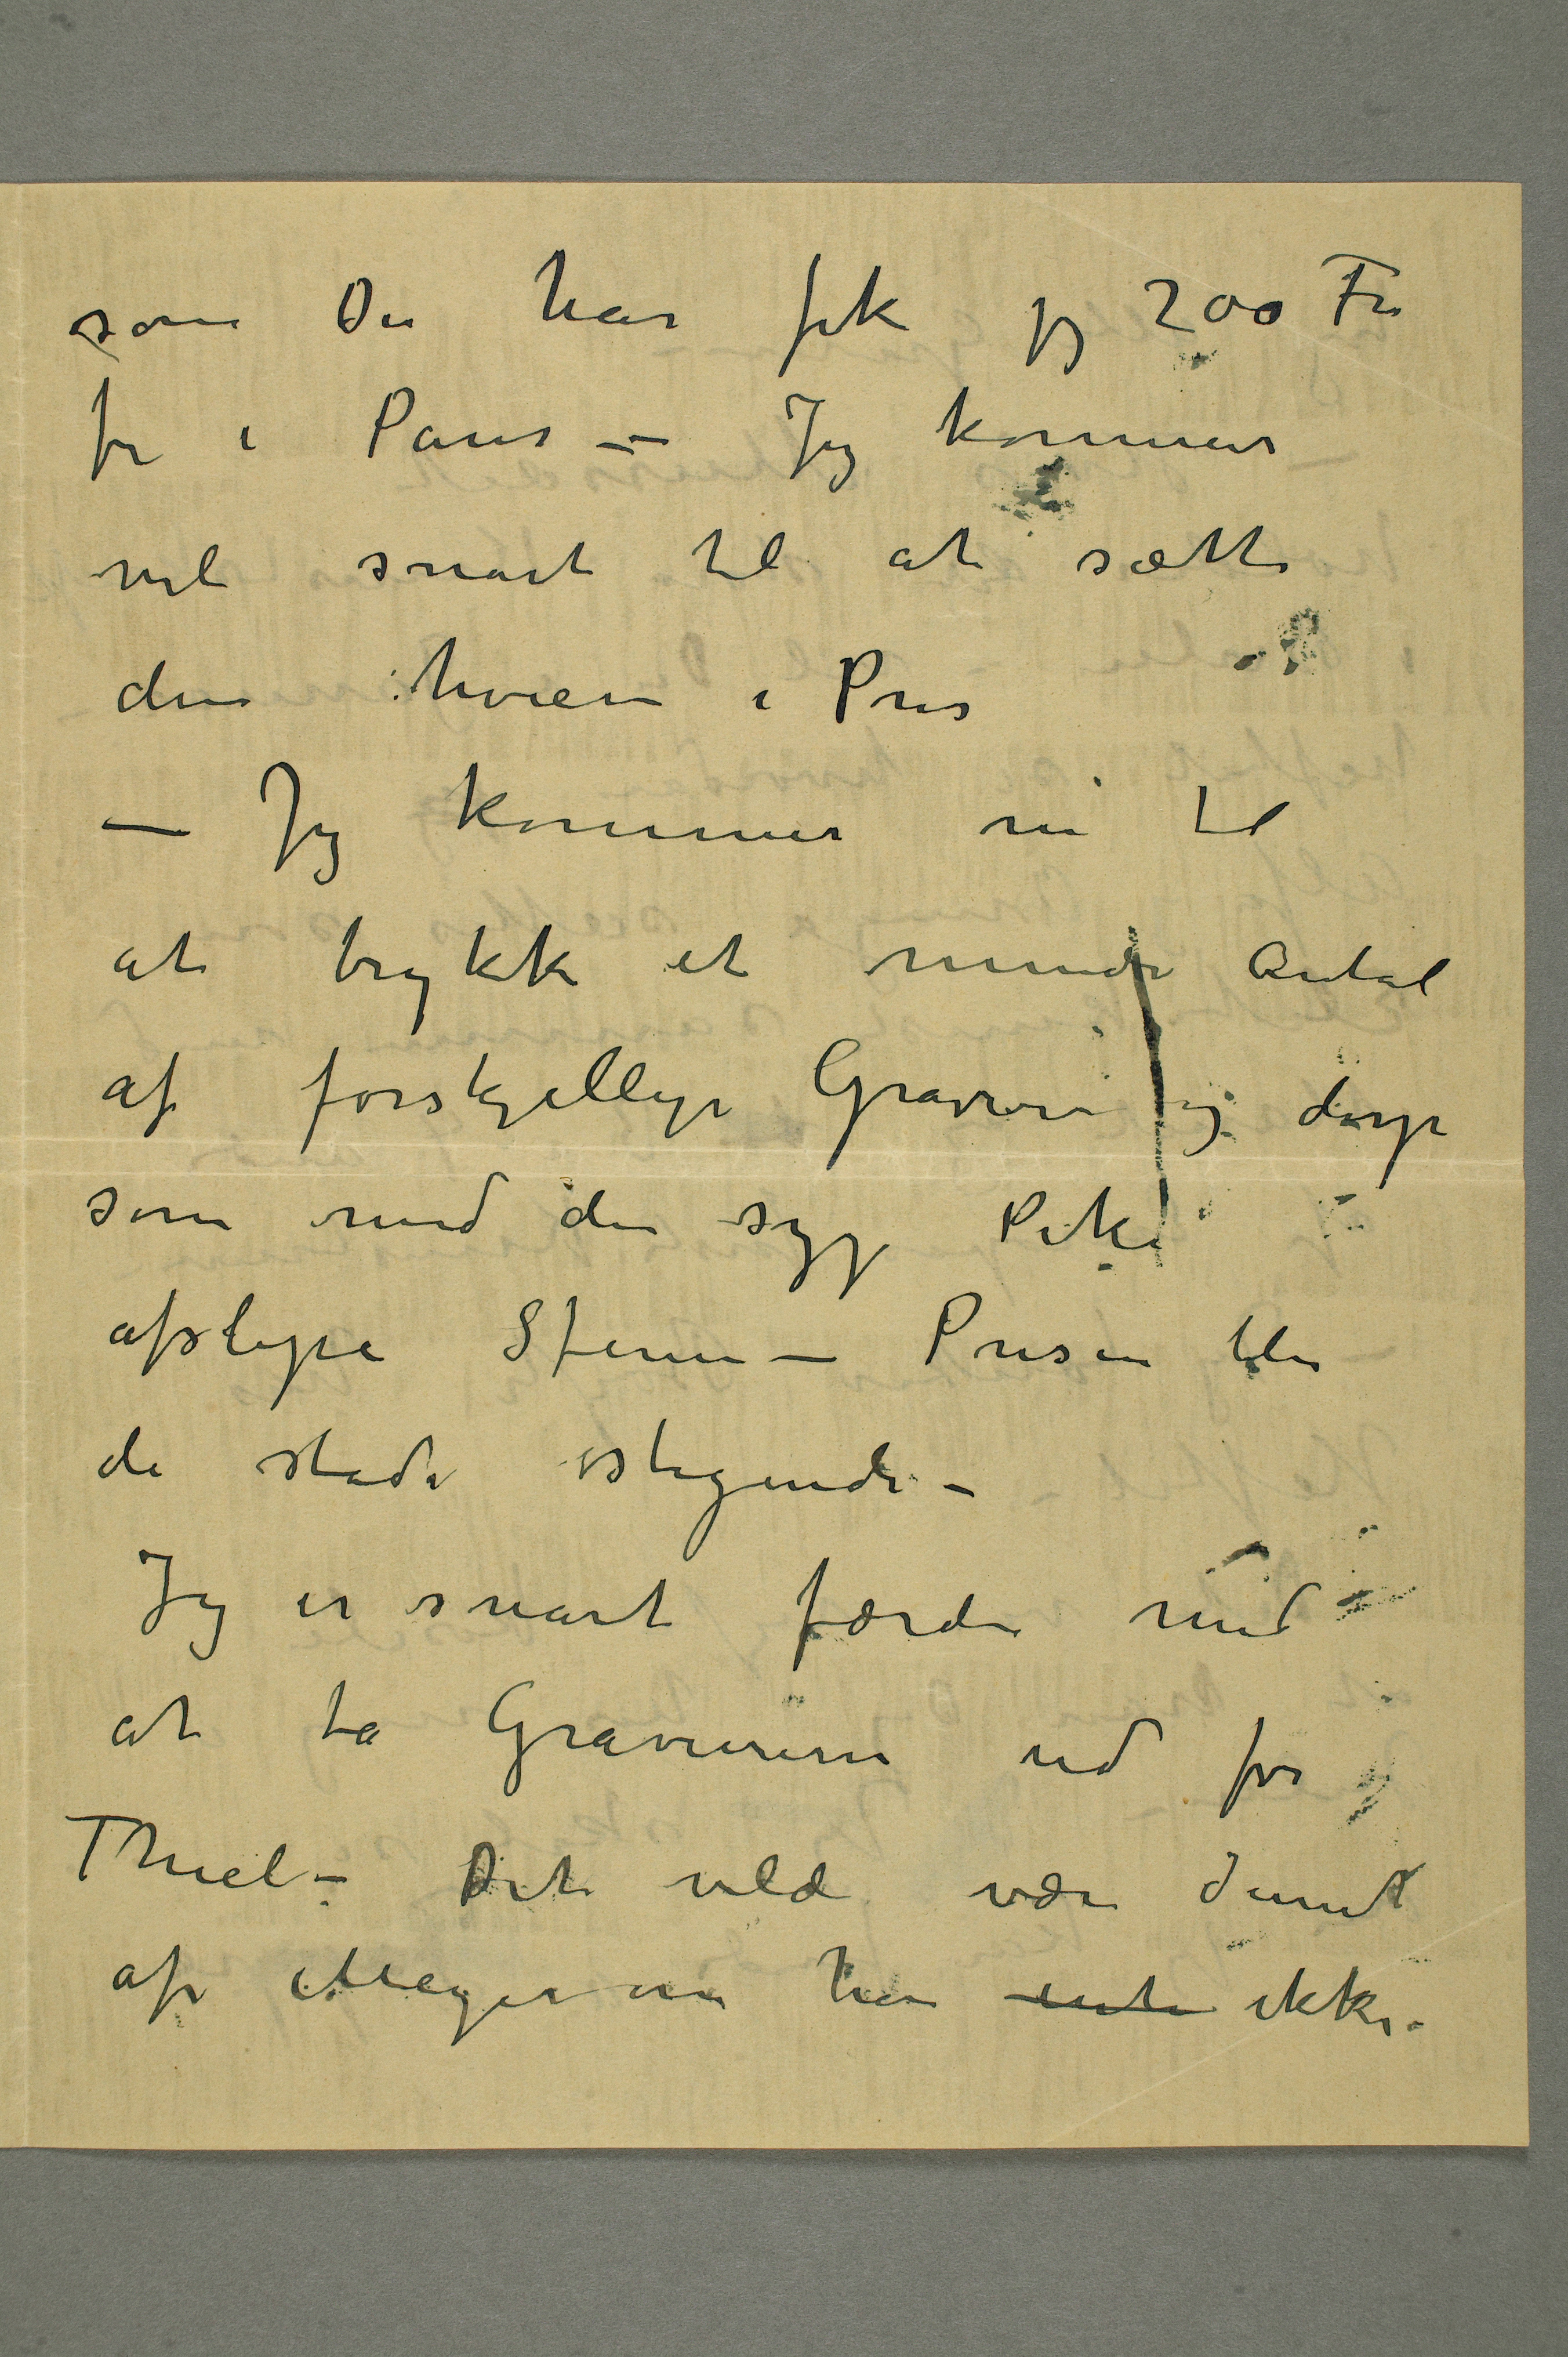 som Du har fik jeg 200 Fr
for i Paris — Jeg kommer
vel snart til at sætte
den høiere i Pris
— Jeg kommer nu til
at trykke et mindre Antal
af forskjellige Gravurer og derpå
som med den syge Pike
afslipe Stenene — Prisen blir
da stadi stigende –
Jeg er snart færdig med
at ta Gravurerne ud for
Thiel – Det vilde være dumt
af Meyer om han inte ikke